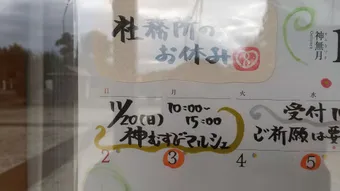 社務所の
お休み
神無月
日 月 火 水
11/20(日) 10:00~
15:00
神むすびマルシェ
受付
ご祈願は
2 3 4 5